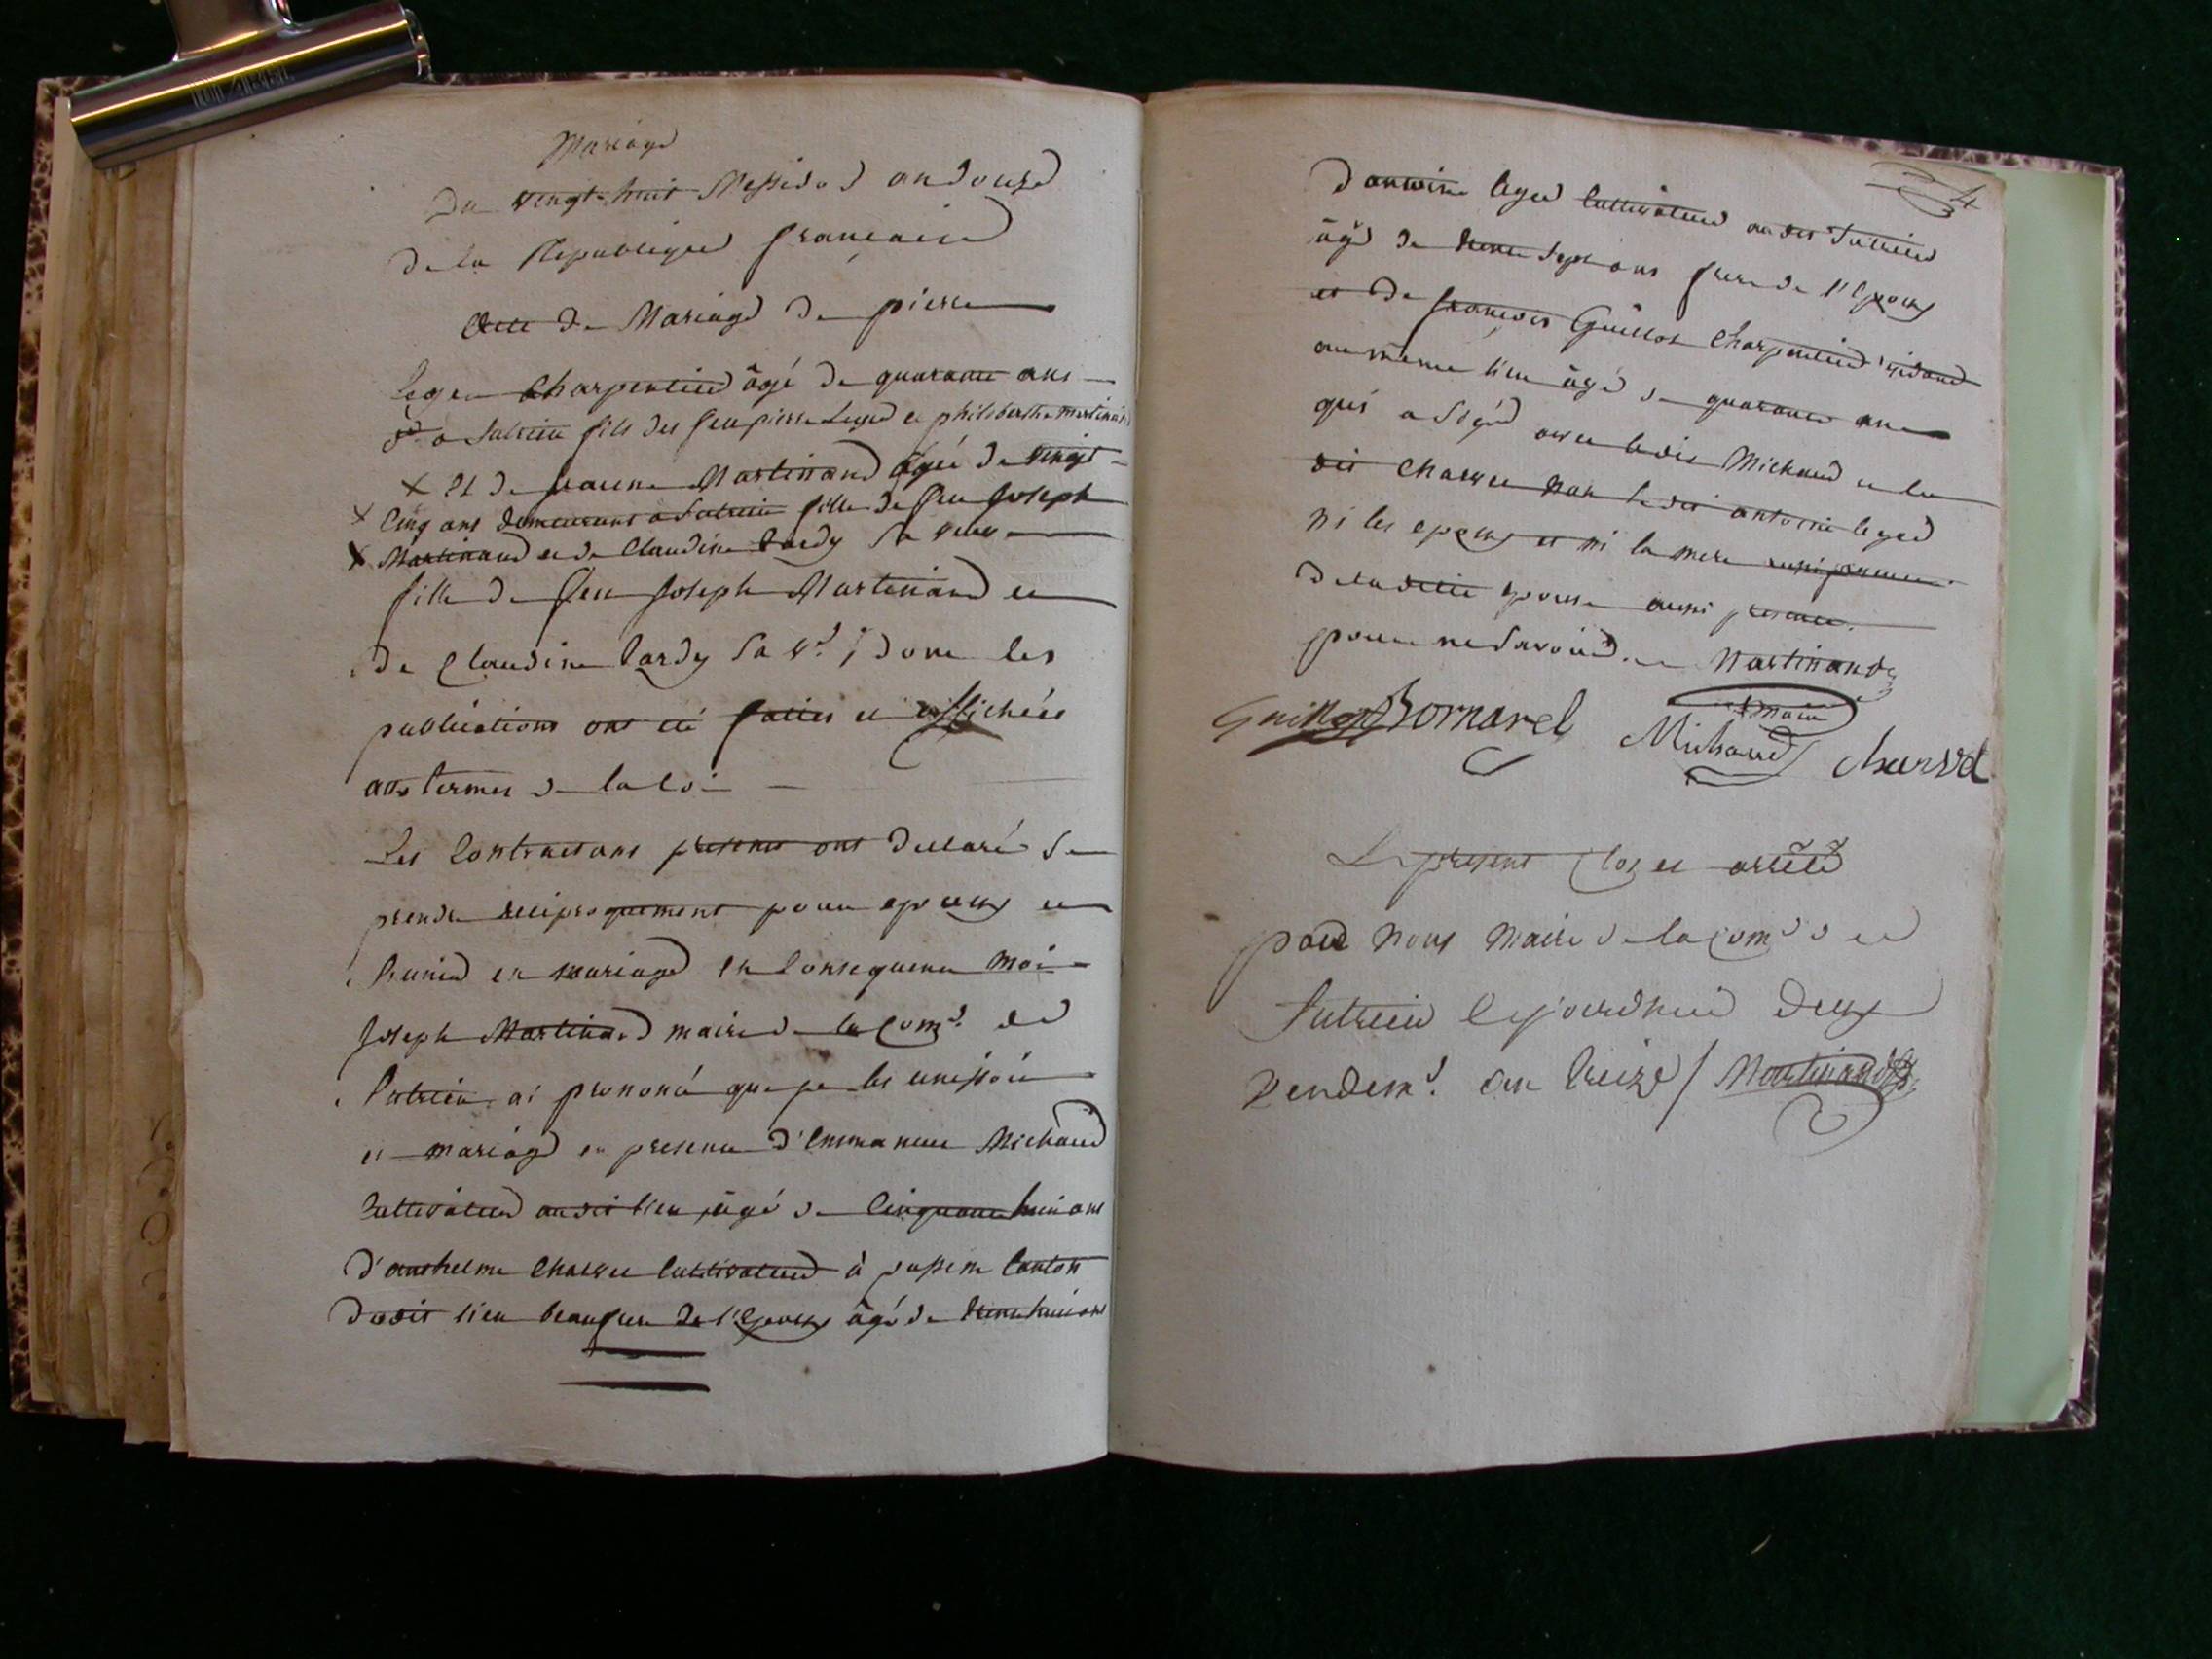 Mariage
Du vingt-huit Messidor an douze
de la Republique francaise
Acte de Mariage de pierre
Leger Charpentier âgé de quarante ans
dt a Sutrieu fils des feu pierre Leger et philiberthe martinand
X Et de jeanne Martinand agée de vingt
X Cinq ans demeurant a Sutrieu fille de feu Joseph
X Martinand et de Claudine Tardy sa veuve
fille de feu Joseph Martinand et
de Claudine Tardy sa vе. ; dont les
publications ont eté faites et affichées
aux termes de la loi
Les Contractans presents ont declaré se
prendre reciproquement pour epoux et
s'unir en mariage en Consequence Moi
Joseph Martinand maire de la Come. de
Sutrieu ai prononcé que je les unissois
en mariage en presence d'Emmanuel Michaud
Cultivateur audit lieu, âgé de Cinquante huit ans
d'anthelme Charvet Cultivateur à passin Canton
dudit lieu beaufrere de l'Epoux âgé de trente huit ans
4
d'antoine leger Cultivateur audit Sutrieu
âgé de trente sept ans frere de l'Epoux
et de françois Guillot Charpentier residant
au même lieu âgé de quarante ans
qui a Signé avec ledit Michaud et le
dit Charvet non ledit antoine leger
ni les epoux et ni la mere
de ladite epouse aussi presente.
pour ne Savoir. Martinand
maire
Guillot Bornarel Michaud Charvet
Le present Clos et arrêté
par Nous Maire de la Come de
Sutrieu Cejourd'hui deux
Vendemre. an treize / Martinand